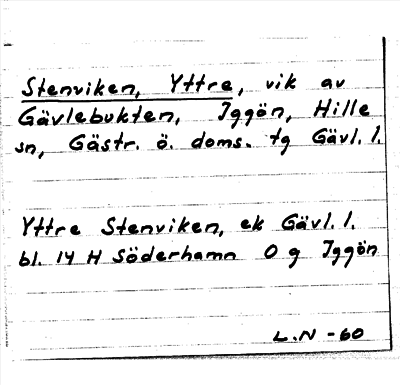 Stenviken, Yttre, vik av
Gävlebukten, Iggön, Hille
sn, Gästr. ö. doms. tg Gävl. l.
Yttre Stenviken, ek Gävl. l.
bl. 14 H Söderhamn O g Iggön
L.N -60